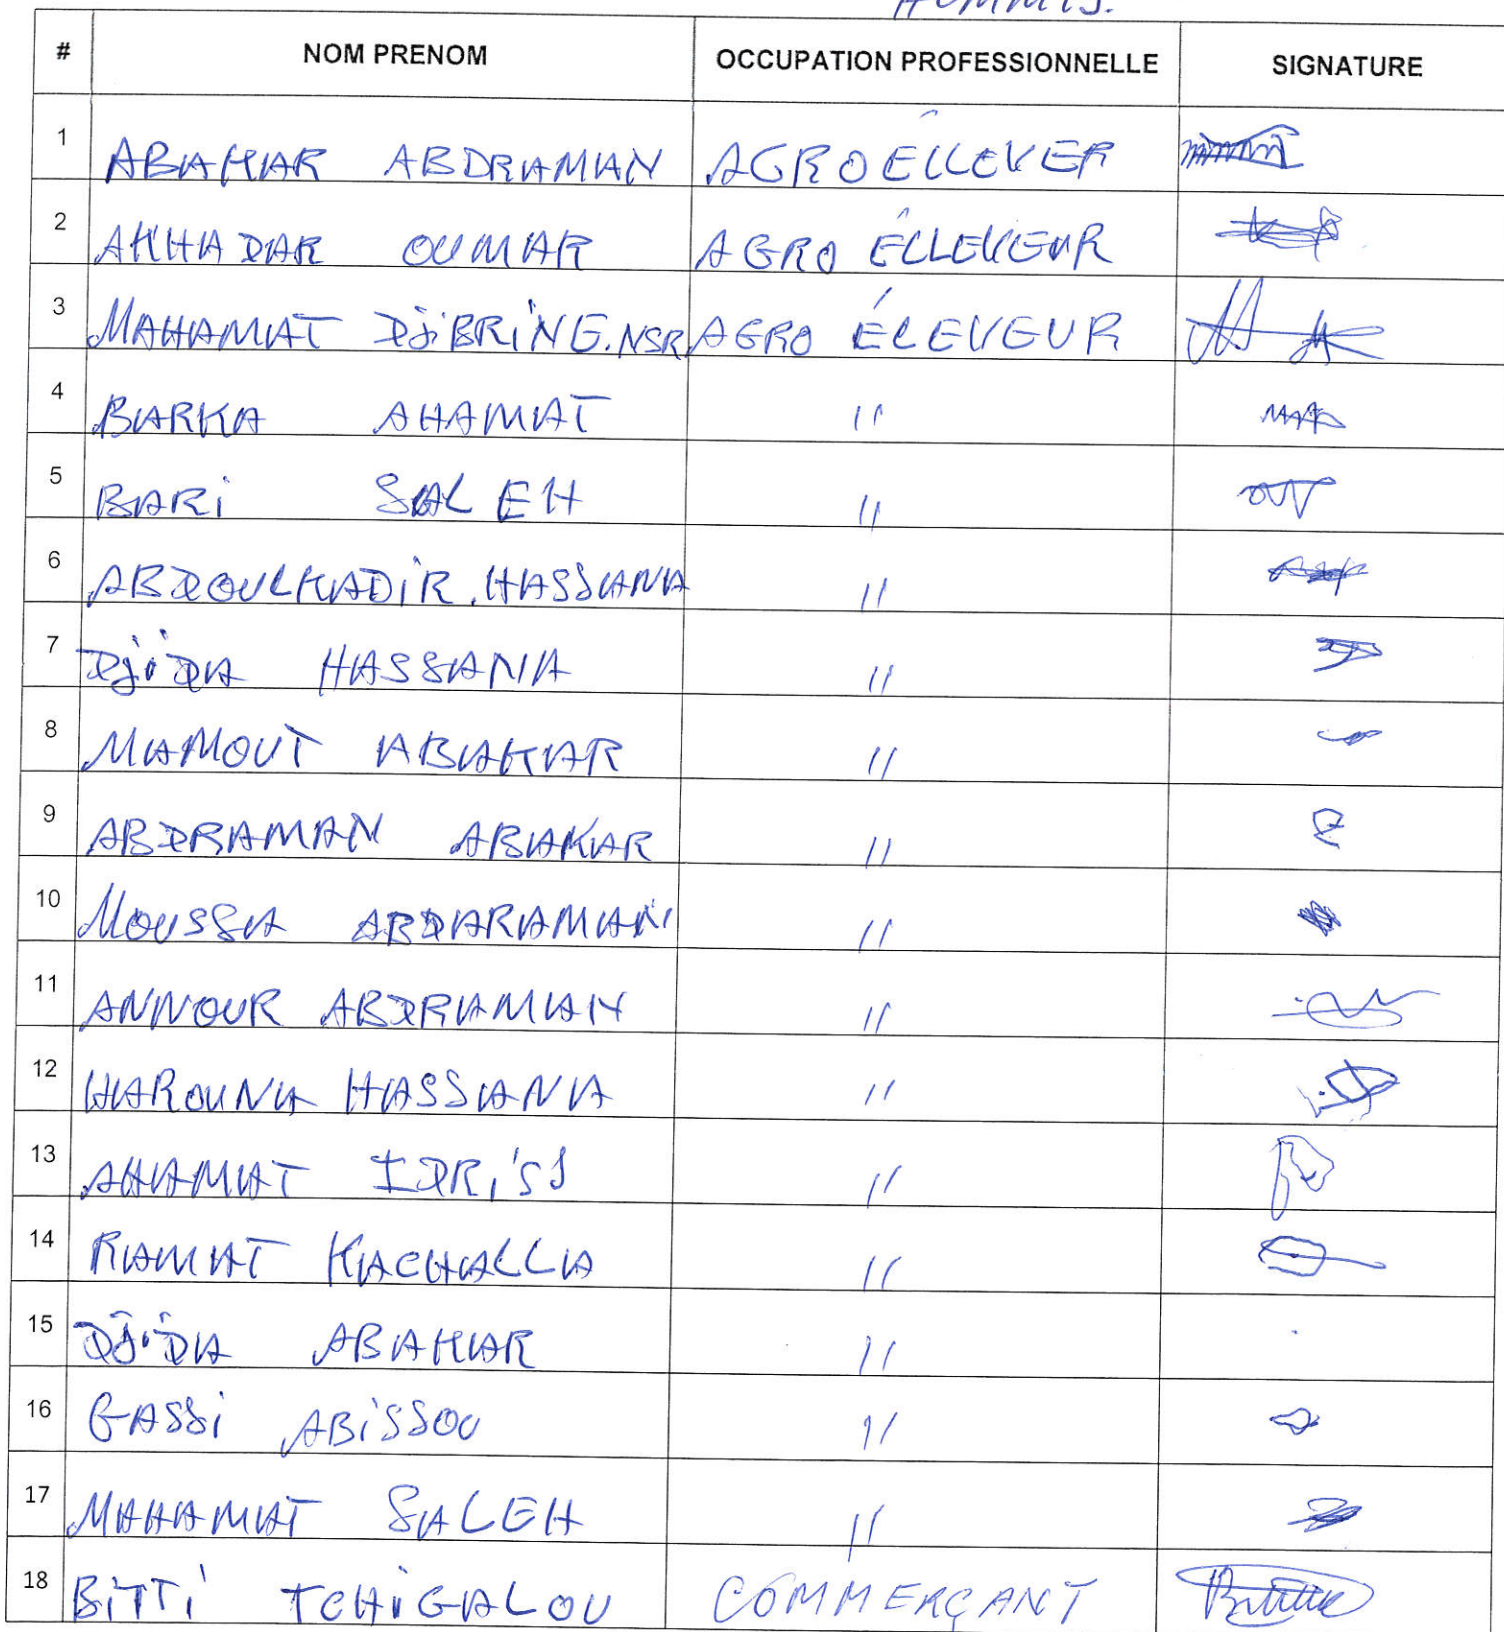 HOMMES.
# NOM PRENOM OCCUPATION PROFESSIONNELLE SIGNATURE
1 ABAKAR ABDRAMAN AGRO ÊLLEVER
2 AKHADAR OUMAR AGRO ÊLLEVEUR
3 MAHAMAT DJIBRINE.NSR AGRO ÉLEVEUR
4 BARKA AHAMAT //
5 BARI SALEH //
6 ABDOULKADIR.HASSANA //
7 DJIDA HASSANA //
8 MAMOUT ABAKAR //
9 ABDRAMAN ABAKAR //
10 MOUSSA ABDARAMAN //
11 ANNOUR ABDRAMAN //
12 HAROUNA HASSANA //
13 AHAMAT IDRISS //
14 RAMAT KACHALLA //
15 DJIDA ABAKAR //
16 GASSI ABISSOU //
17 MAHAMAT SALEH //
18 BITTI TCHIGALOU COMMERÇANT